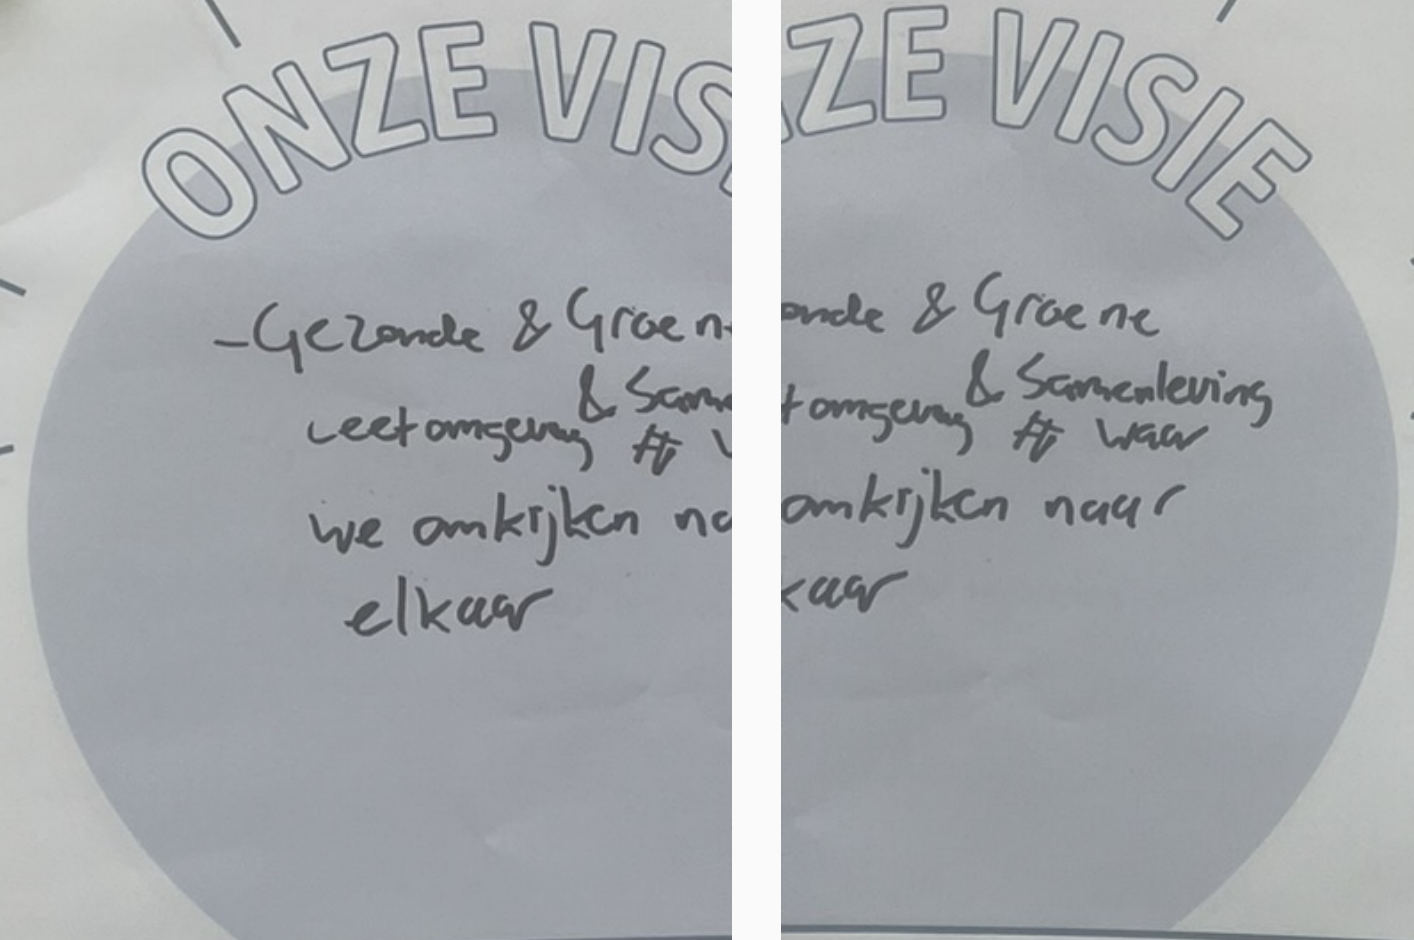 ONZE VIS
- Gezonde & Groen
& Same
Leefomgeving
we omkijken na
elkaar
ZE VISIE
onde & Groene
& Samenleving
omgeving waar
omkijken naar
kaar